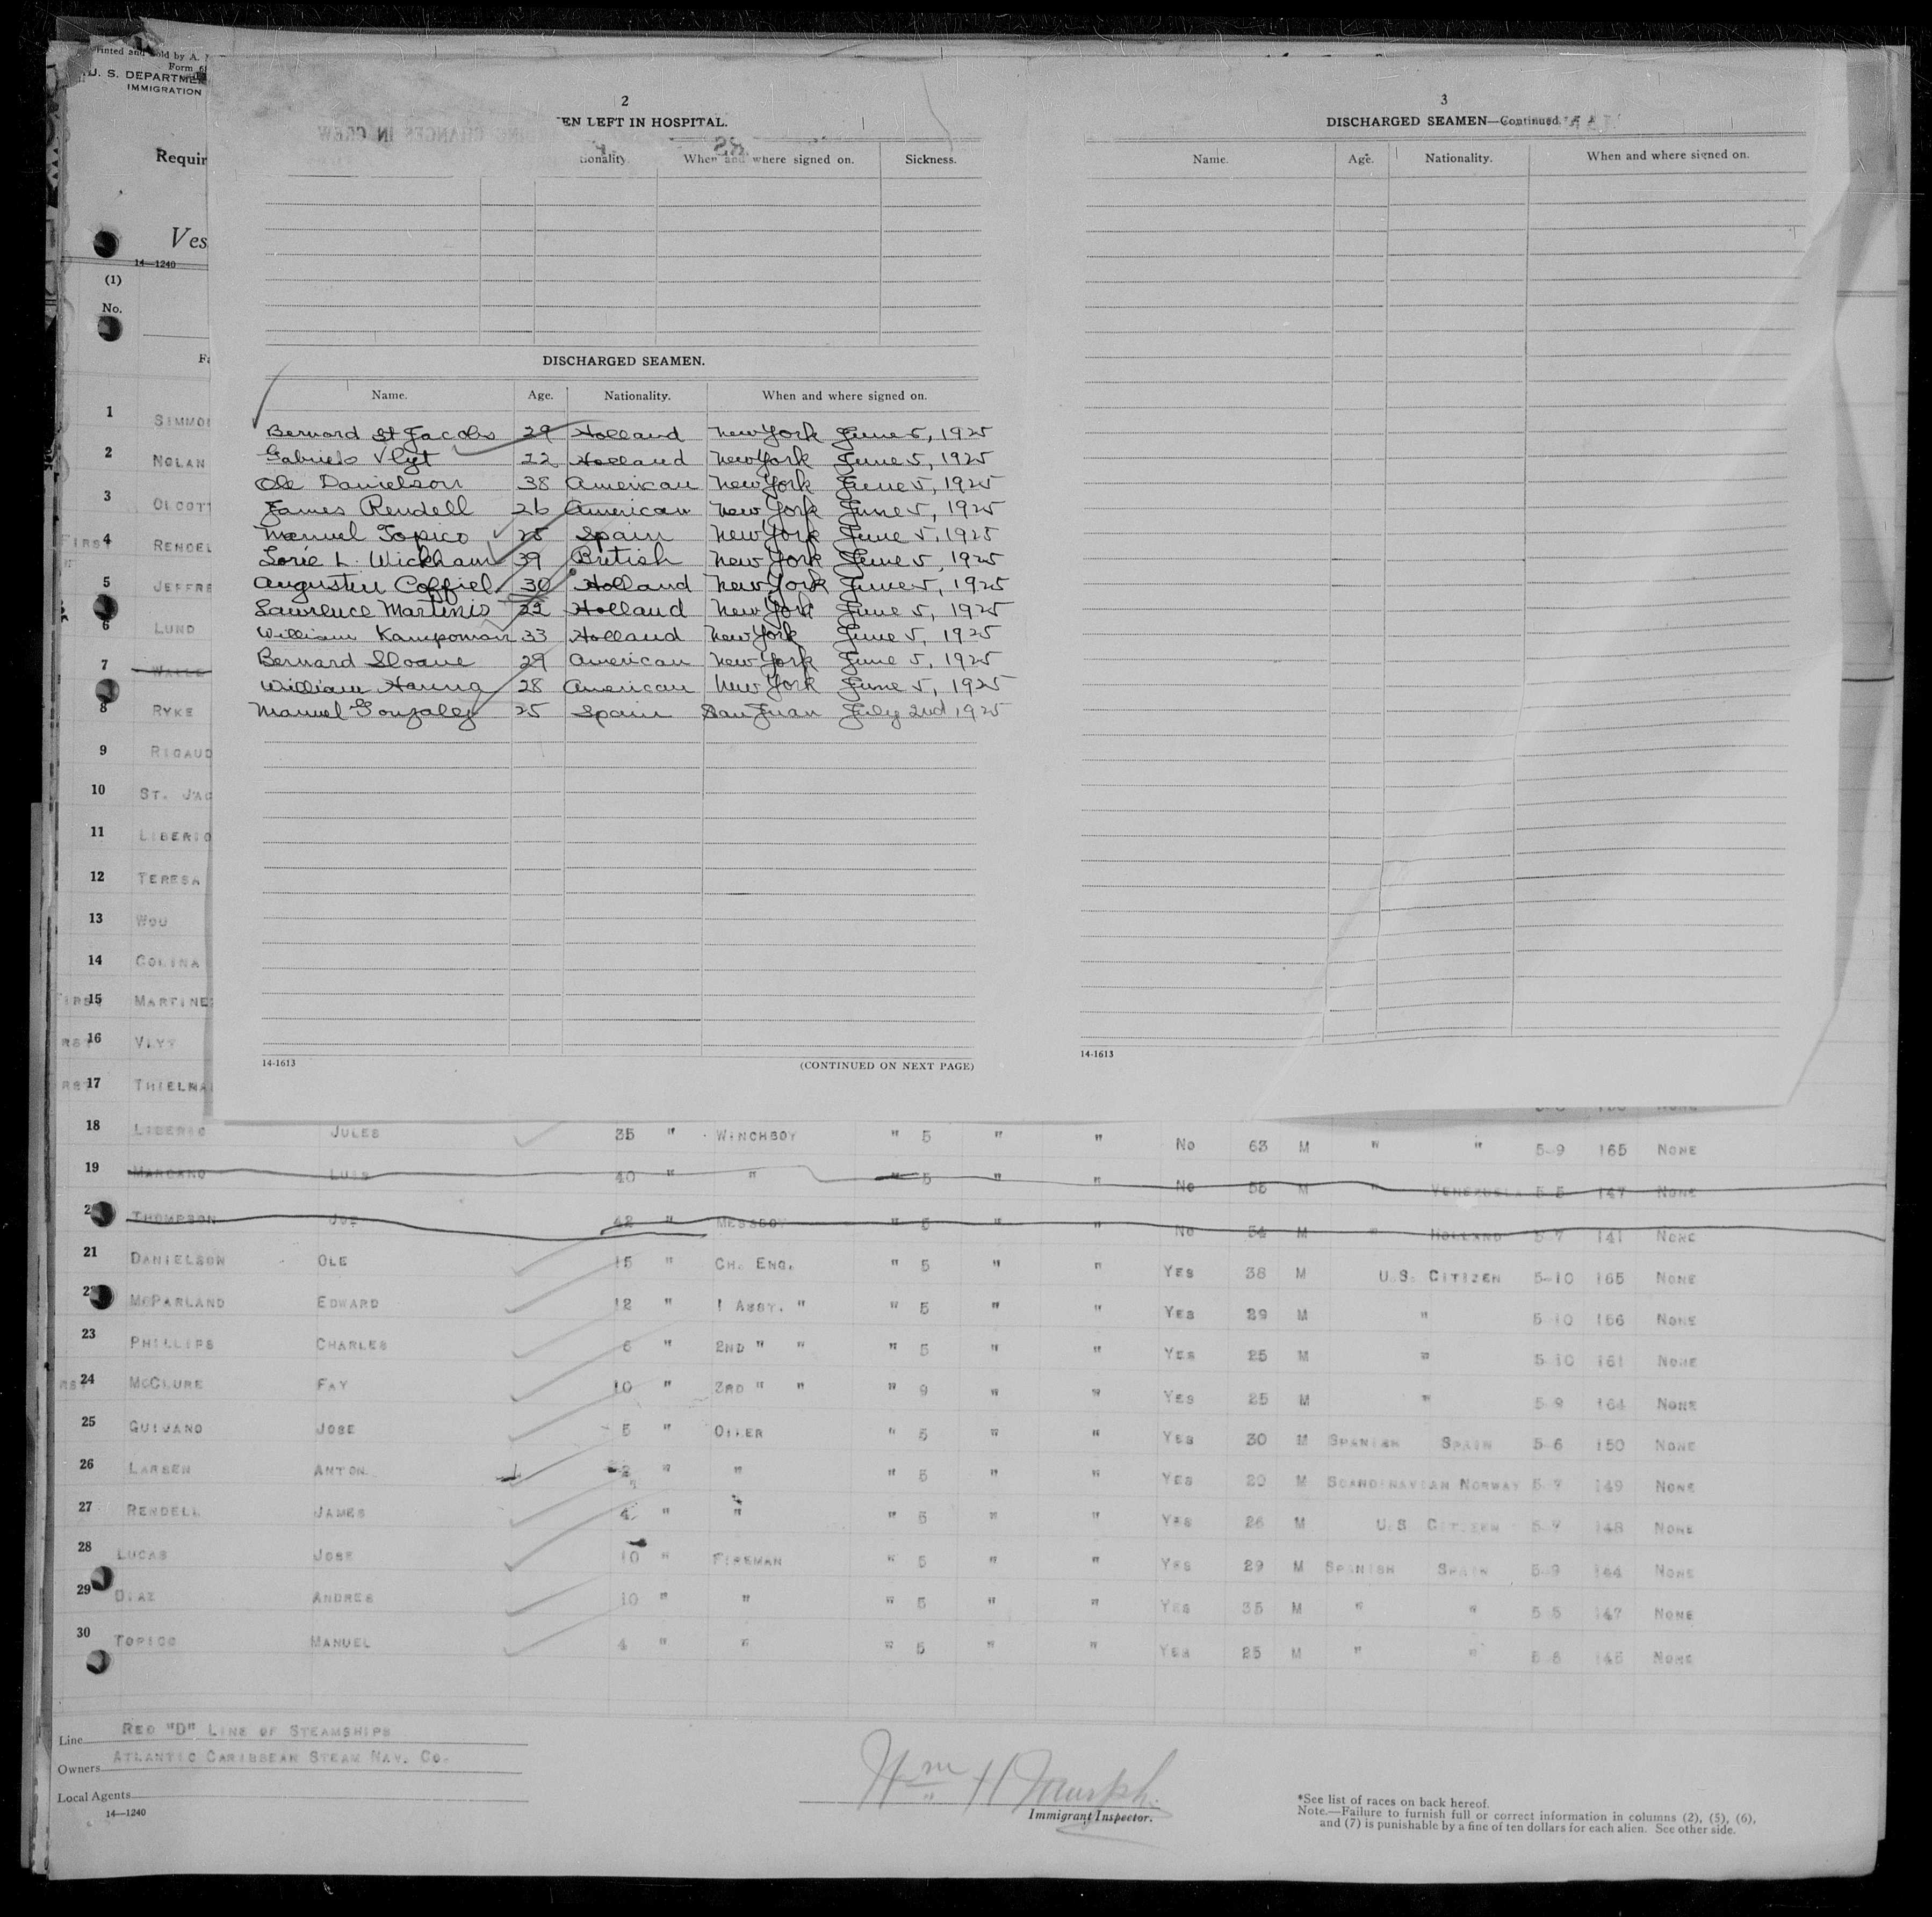 Form
U. S. DEPARTME
IMMIGRATION
Requir
Ves
14—1240
(1)
No.
2
EN LEFT IN HOSPITAL.
ionality. When and where signed on. Sickness.
DISCHARGED SEAMEN.
Name. Age. Nationality. When and where signed on.
Bernard St Jacobs 29 Holland New York June 5, 1925
Gabriels Vlyt 22 Holland New York June 5, 1925
Ole Danielson 38 American New York June 5, 1925
James Rendell 26 American New York June 5, 1925
Manuel Topico 25 Spain New York June 5, 1925
Lorie L. Wickham 39 British New York June 5, 1925
Augustin Coffiel 30 Holland New York June 5, 1925
Lawrence Martinis 22 Holland New York June 5, 1925
William Kampoman 33 Holland New York June 5, 1925
Bernard Sloane 29 American New York June 5, 1925
William Hanna 28 American New York June 5, 1925
Manuel Gonzalez 25 Spain San Juan July 2nd 1925
14-1613 (CONTINUED ON NEXT PAGE)
3
DISCHARGED SEAMEN—Continued.
Name. Age. Nationality. When and where signed on.
14-1613
1 SIMMO
2 NOLAN
3 OLCOTT
FIRST 4 RENDEL
5 JEFFRE
6 LUND
7
8 RYKE
9 RIGAUD
10 ST. JAC
11 LIBERIO
12 TERESA
13 WOU
14 COLINA
15 MARTINE
16 VLYT
17 THIELMA
18 LIBERIO JULES 35 " WINCHBOY " 5 " " NO 63 M " " 5-9 165 NONE
19 MARCANO LUIS 40 " " " 5 " " NO 55 M " VENEZUELA 5-5 147 NONE
THOMPSON JOE 42 " MESSBOY " 5 " " NO 54 M " HOLLAND 5-7 141 NONE
21 DANIELSON OLE 15 " CH. ENG. " 5 " " YES 38 M U.S. CITIZEN 5-10 165 NONE
MCPARLAND EDWARD 12 " 1 ASST. " " 5 " " YES 29 M " 5-10 156 NONE
23 PHILLIPS CHARLES 6 " 2ND " " " 5 " " YES 25 M " 5-10 161 NONE
24 MCCLURE FAY 10 " 3RD " " " 9 " " YES 25 M " 5-9 164 NONE
25 GUIJANO JOSE 5 " OILER " 5 " " YES 30 M SPANISH SPAIN 5-6 150 NONE
26 LARSEN ANTON 2 " " " 5 " " YES 20 M SCANDINAVIAN NORWAY 5-7 149 NONE
27 RENDELL JAMES 4 " " " 5 " " YES 26 M U.S. CITIZEN 5-7 148 NONE
28 LUCAS JOSE 10 " FIREMAN " 5 " " YES 29 M SPANISH SPAIN 5-9 144 NONE
29 DIAZ ANDRES 10 " " " 5 " " YES 35 M " " 5-5 147 NONE
30 TOPICO MANUEL 4 " " " 5 " " YES 25 M " " 5-6 145 NONE
Line RED "D" LINE OF STEAMSHIPS
Owners ATLANTIC CARIBBEAN STEAM NAV. CO.
Local Agents
14—1240
Wm H Murph
Immigrant Inspector.
*See list of races on back hereof.
Note.—Failure to furnish full or correct information in columns (2), (5), (6),
and (7) is punishable by a fine of ten dollars for each alien. See other side.